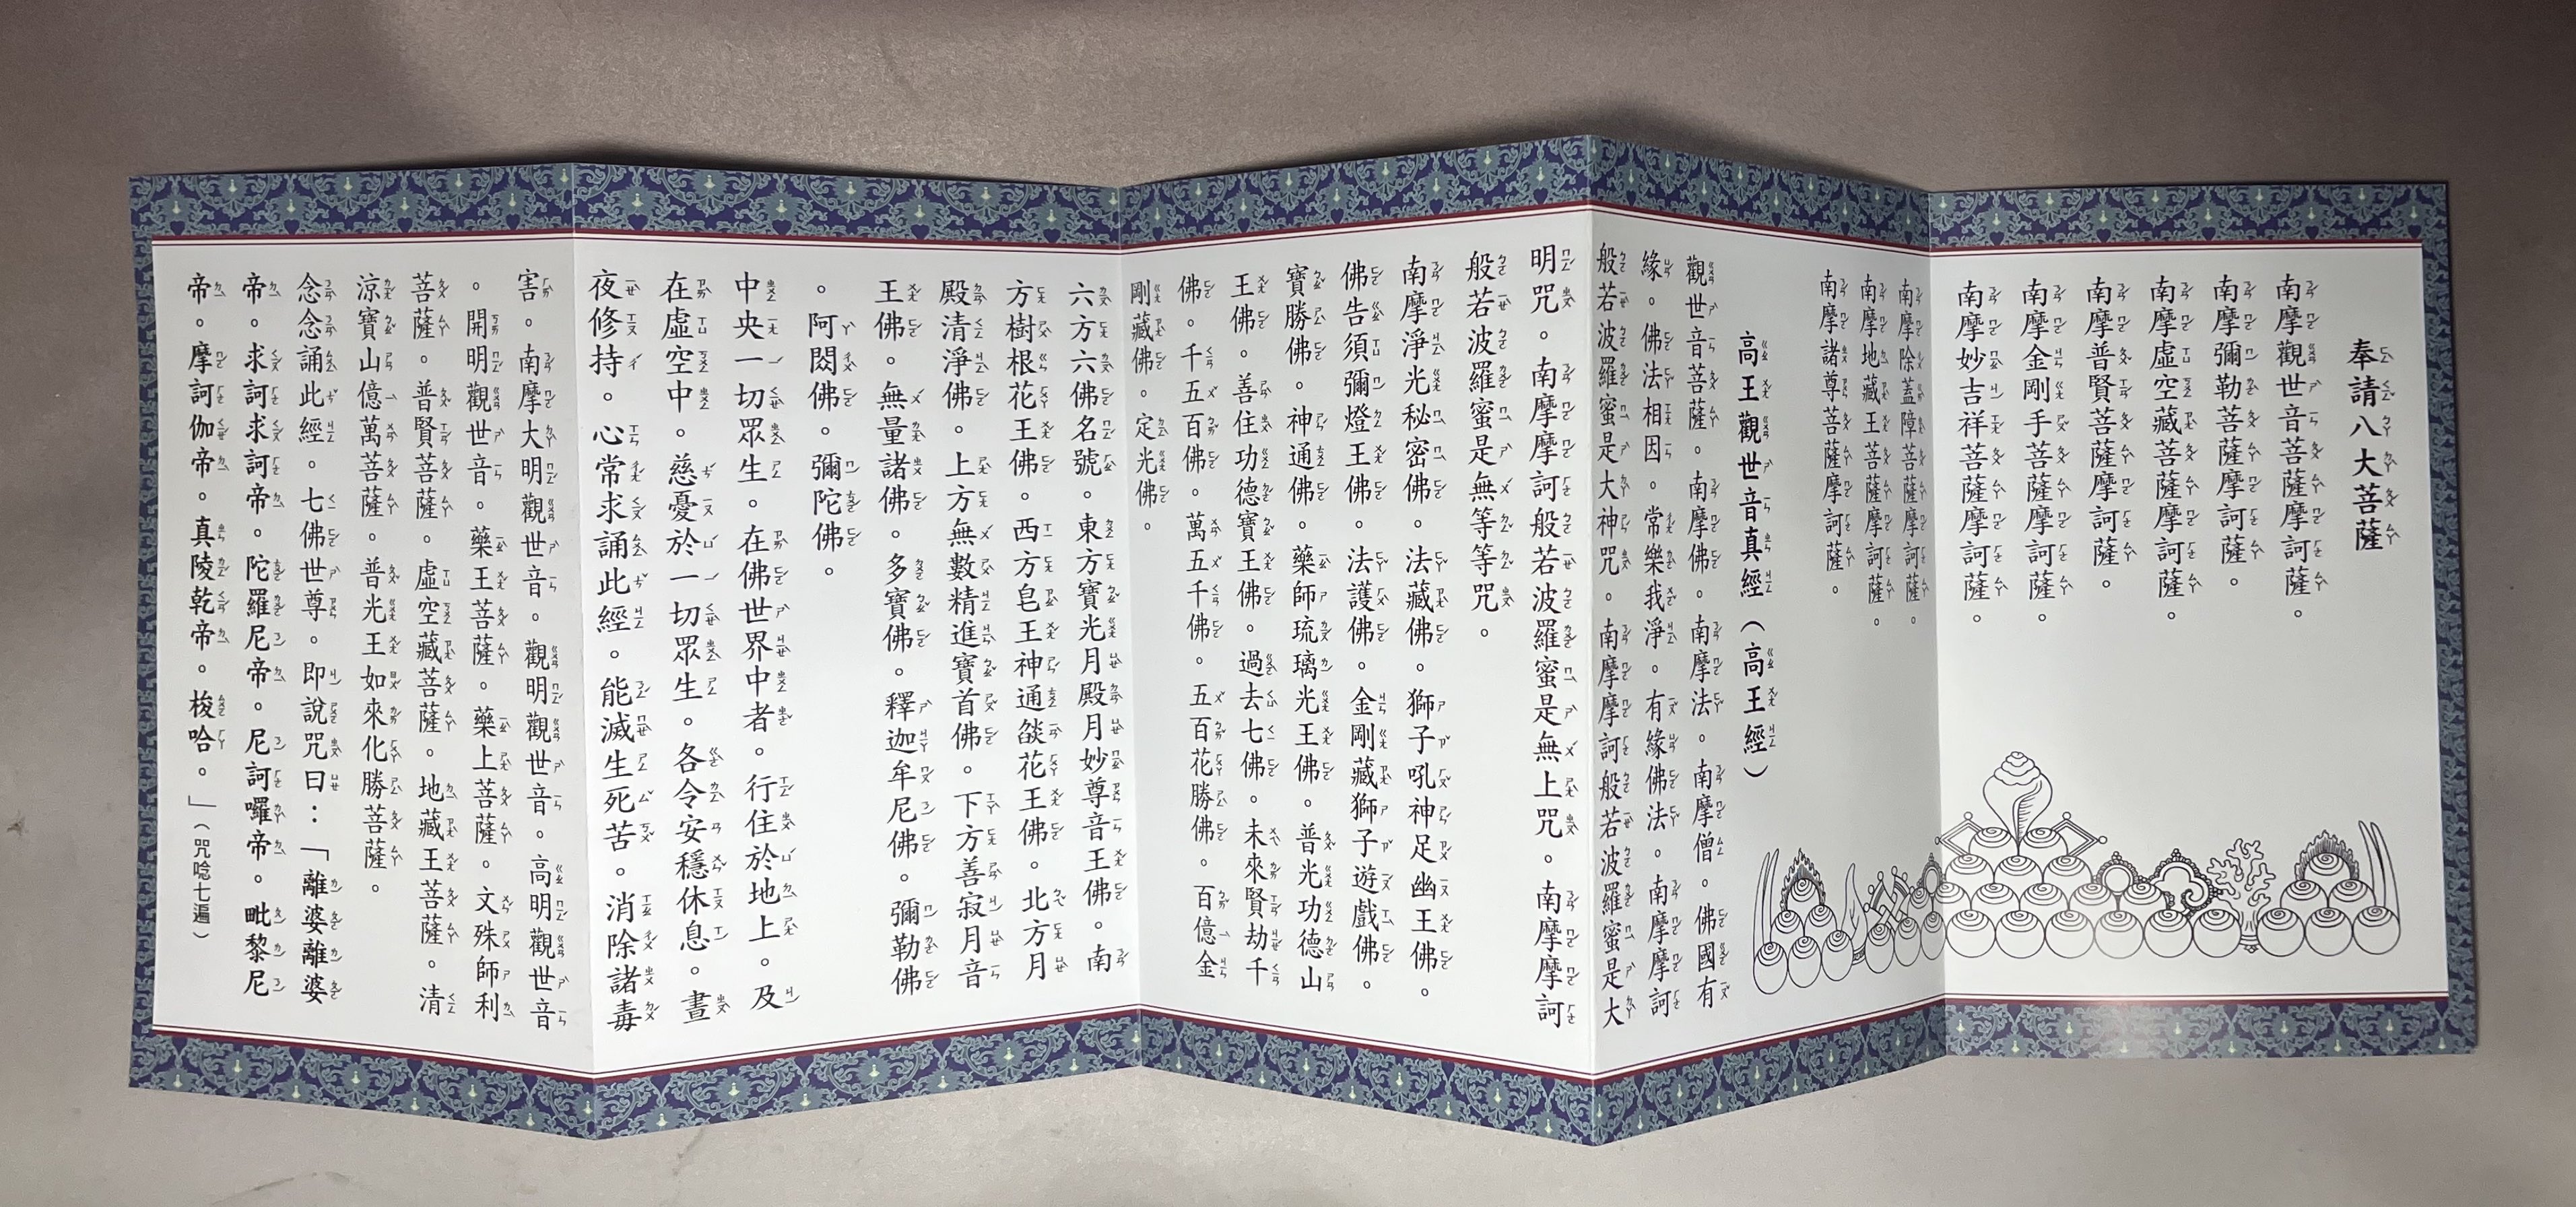 奉請八大菩薩
南摩觀世音菩薩摩訶薩。
南摩彌勒菩薩摩訶薩。
南摩虛空藏菩薩摩訶薩。
南摩普賢菩薩摩訶薩。
南摩金剛手菩薩摩訶薩。
南摩妙吉祥菩薩摩訶薩。
南摩除蓋障菩薩摩訶薩。
南摩地藏王菩薩摩訶薩。
南摩諸尊菩薩摩訶薩。
高王觀世音真經(高王經)
觀世音菩薩。南摩佛。南摩法。南摩僧。佛國有
緣。佛法相因。常樂我淨。有緣佛法。南摩摩訶
般若波羅蜜是大神咒。南摩摩訶般若波羅蜜是大
明咒。南摩摩訶般若波羅蜜是無上咒。南摩摩訶
般若波羅蜜是無等等咒。
南摩淨光秘密佛。法藏佛。獅子吼神足幽王佛。
佛告須彌燈王佛。法護佛。金剛藏獅子遊戲佛。
寶勝佛。神通佛。藥師琉璃光王佛。普光功德山
王佛。善住功德寶王佛。過去七佛。未來賢劫千
佛。千五百佛。萬五千佛。五百花勝佛。百億金
剛藏佛。定光佛。
六方六佛名號。東方寶光月殿月妙尊音王佛。南
方樹根花王佛。西方皂王神通燄花王佛。北方月
殿清淨佛。上方無數精進寶首佛。下方善寂月音
王佛。無量諸佛。多寶佛。釋迦牟尼佛。彌勒佛
。阿閦佛。彌陀佛。
中央一切眾生。在佛世界中者。行住於地上。及
在虛空中。慈憂於一切眾生。各令安穩休息。晝
夜修持。心常求誦此經。能滅生死苦。消除諸毒
害。南摩大明觀世音。觀明觀世音。高明觀世音
。開明觀世音。藥王菩薩。藥上菩薩。文殊師利
菩薩。普賢菩薩。虛空藏菩薩。地藏王菩薩。清
涼寶山億萬菩薩。普光王如來化勝菩薩。
念念誦此經。七佛世尊。即說咒曰：「離婆離婆
帝。求訶求訶帝。陀羅尼帝。尼訶囉帝。毗黎尼
帝。摩訶伽帝。真陵乾帝。梭哈。」(咒唸七遍)